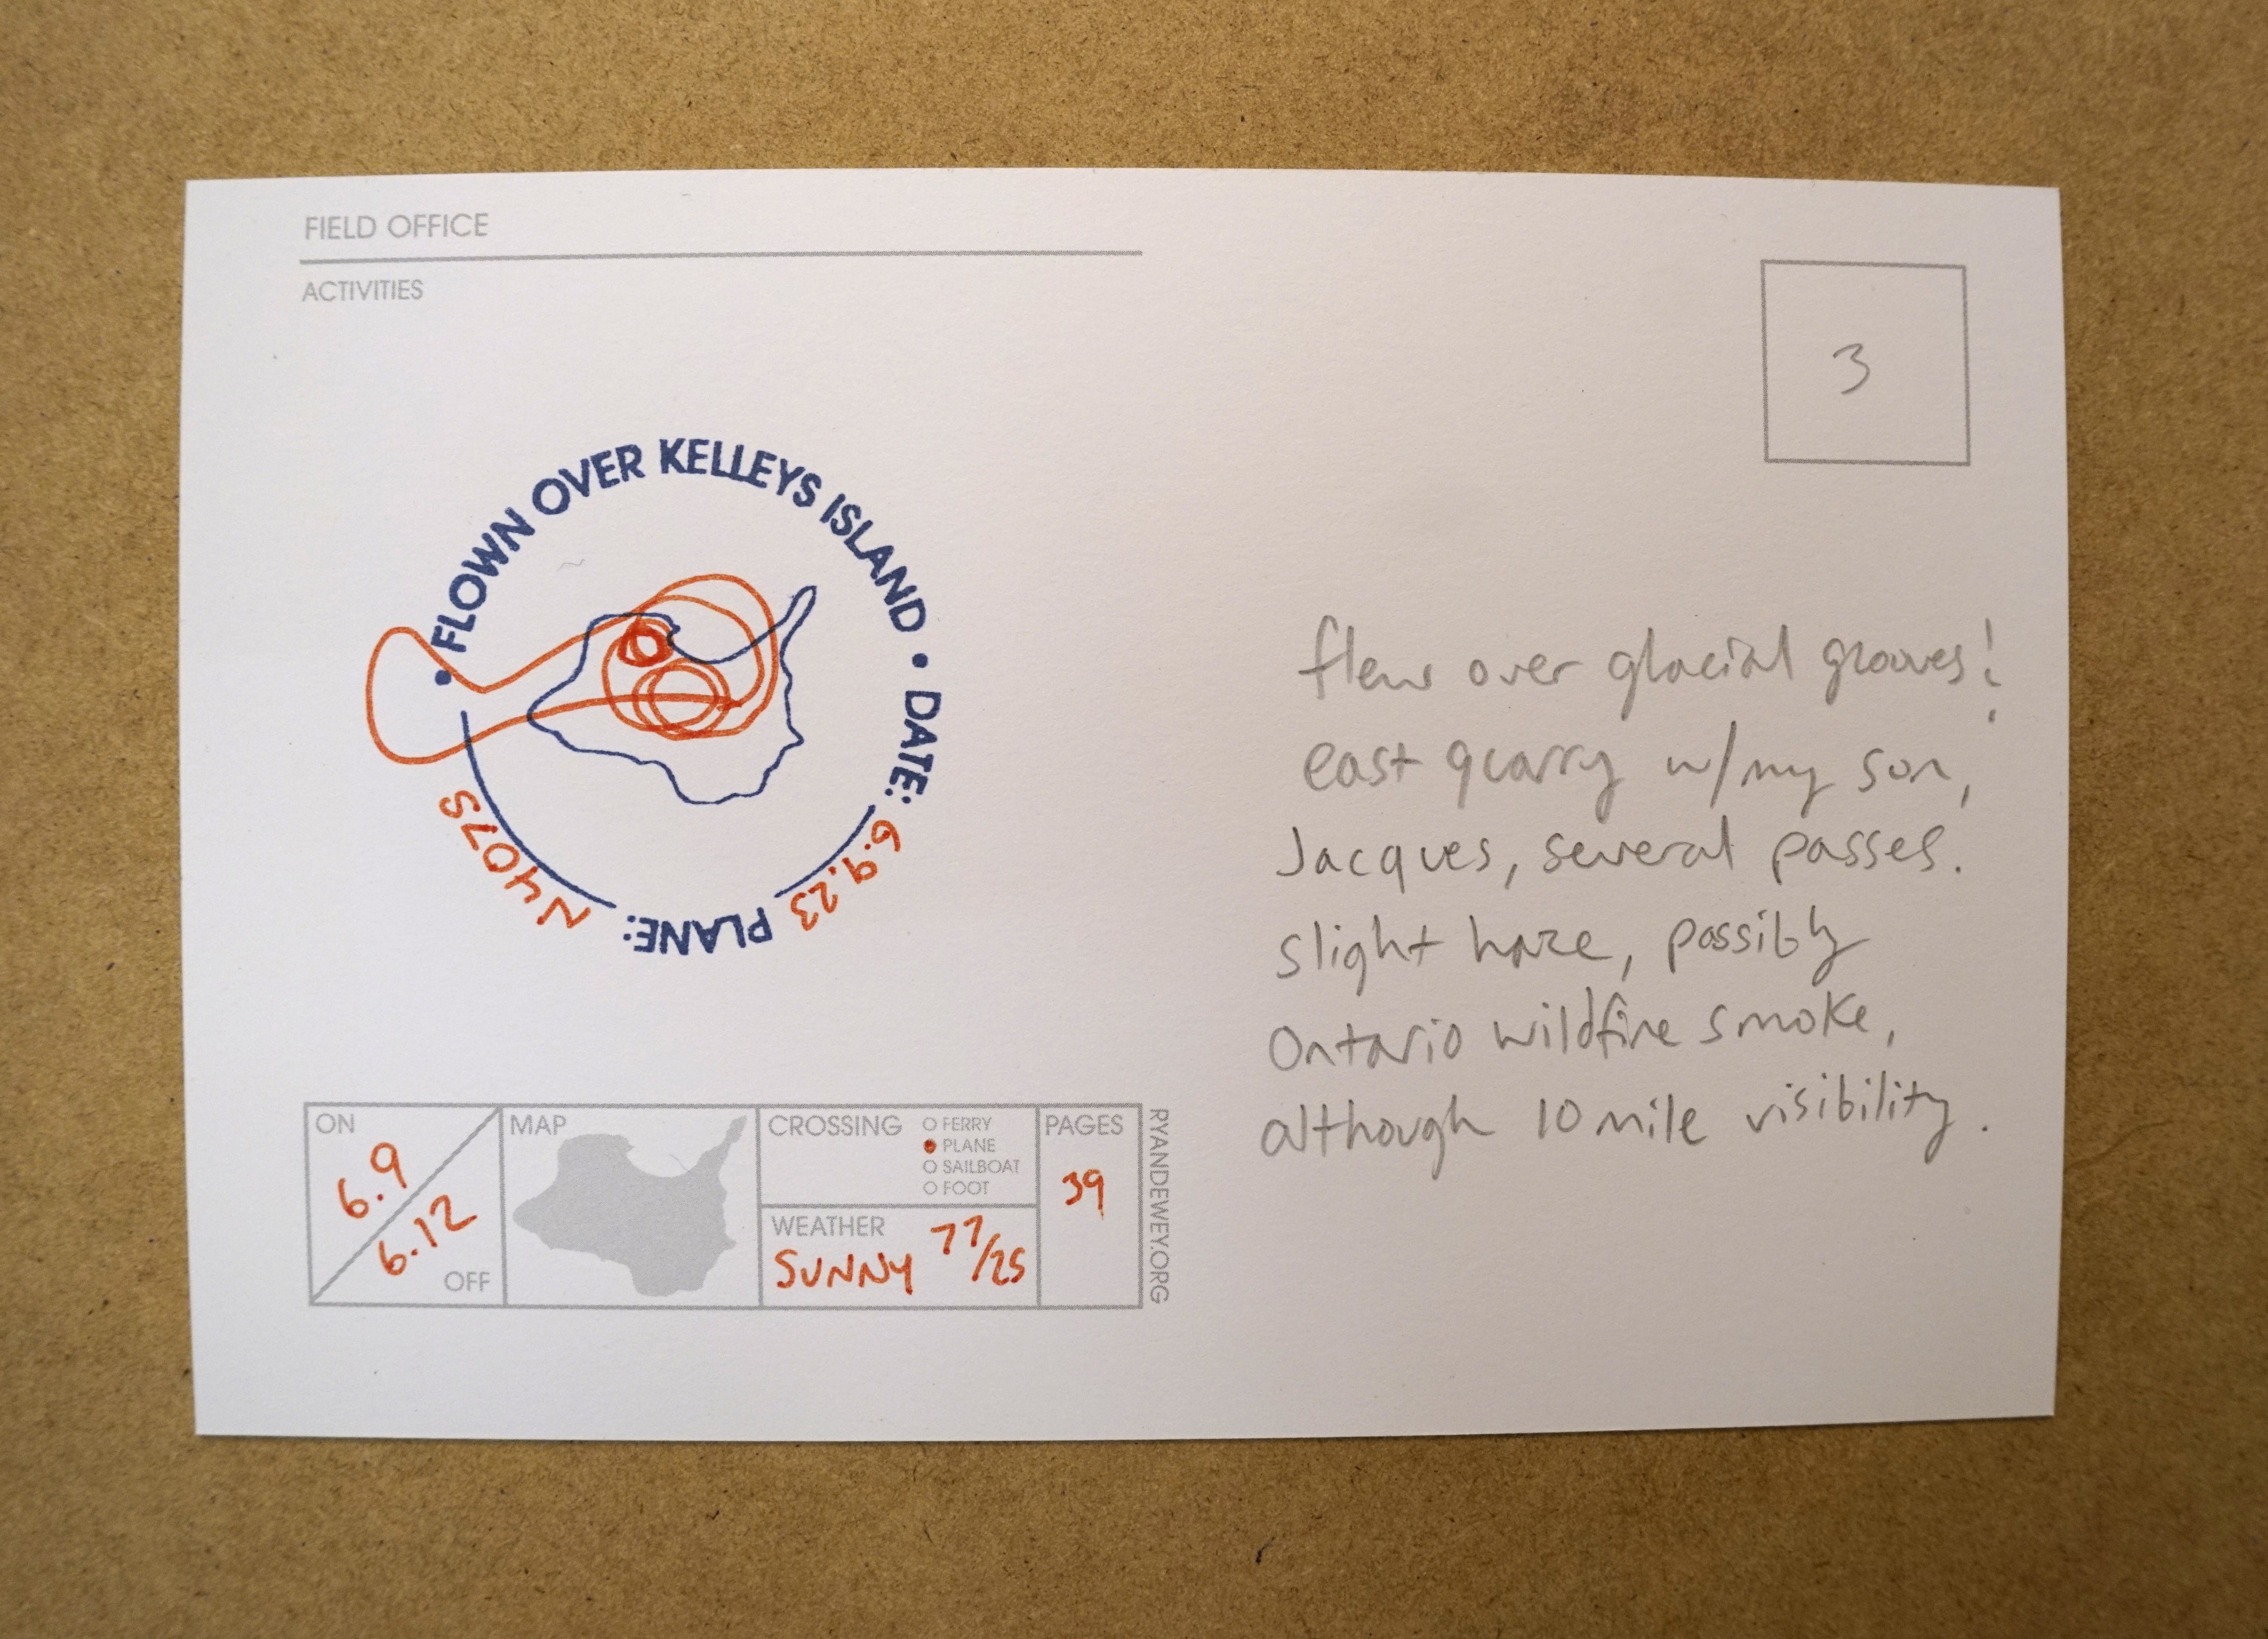 FIELD OFFICE
ACTIVITIES
3
• FLOWN OVER KELLEYS ISLAND • DATE: 6.9.23 PLANE: N407S
flew over glacial grooves!
east quarry w/my son,
Jacques, several passes.
slight haze, possibly
Ontario wildfire smoke,
although 10 mile visibility.
ON
6.9
6.12
OFF
MAP
CROSSING
FERRY
PLANE
SAILBOAT
FOOT
WEATHER
SUNNY 77/25
PAGES
39
RYANDEWEY.ORG